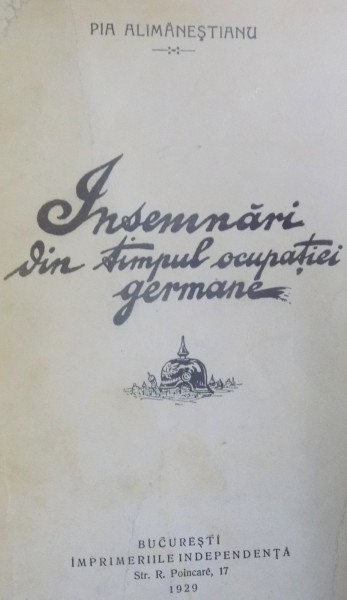 PIA ALIMĂNEȘTIANU
Insemnări
din timpul ocupației
germane
BUCUREȘTI
IMPRIMERIILE INDEPENDENȚA
Str. R. Poincaré, 17
1929